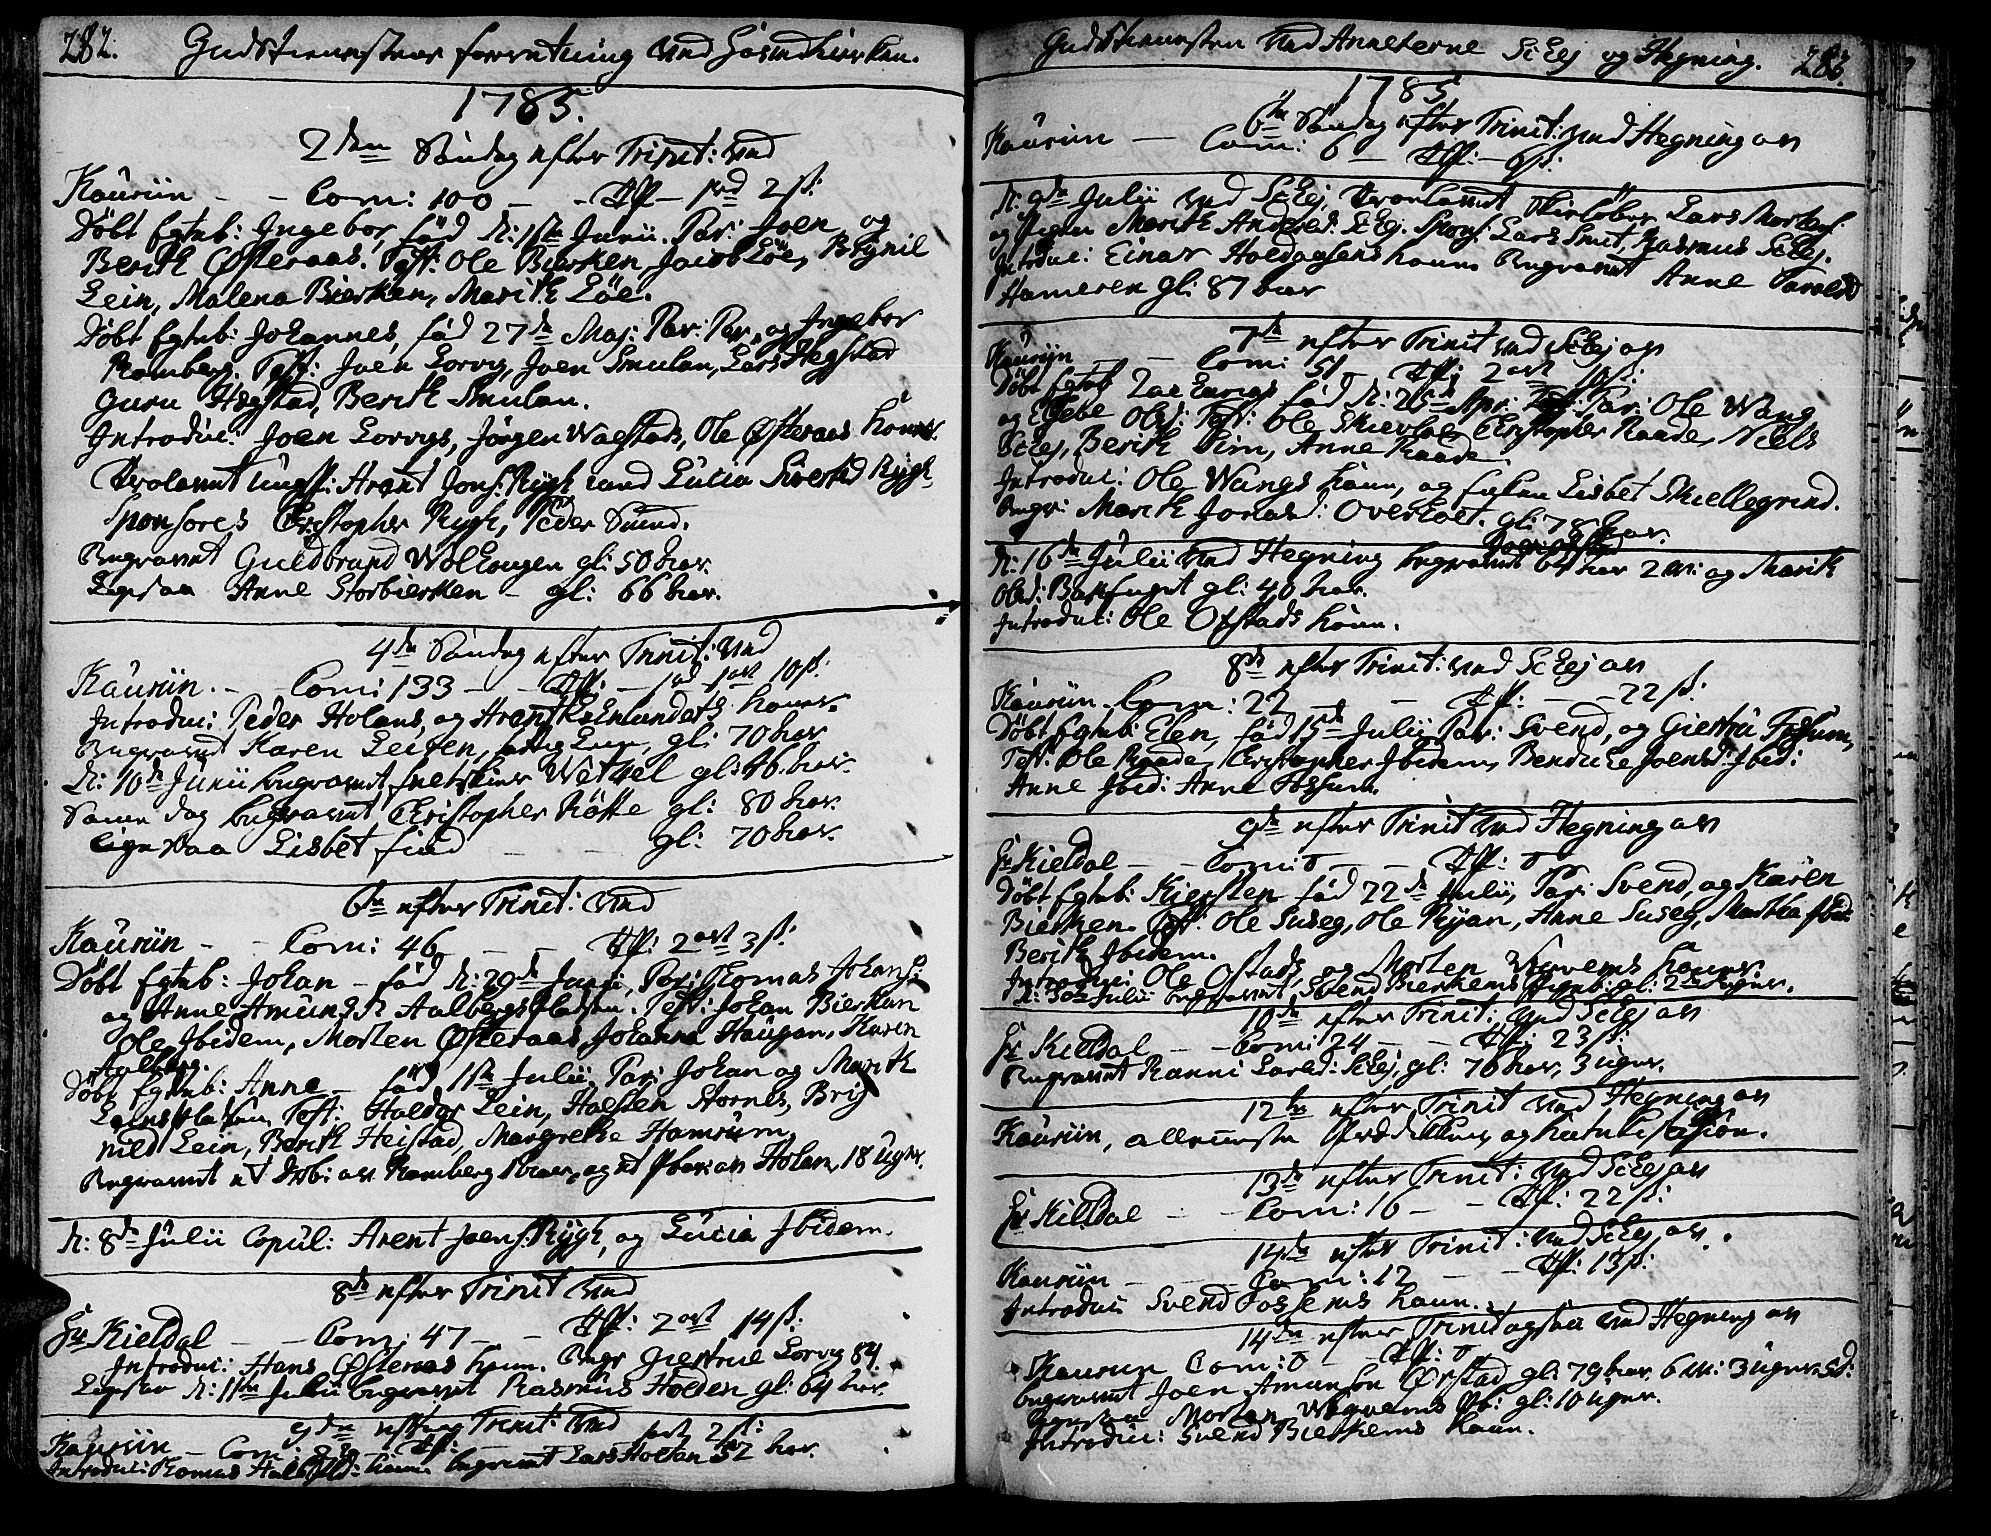 282. Gudstienestens forretning ved Hovedkirken.
1785.
2den Søndag efter Trinit: ved
Kaurin - - Com: 100 - - Off - 1rd 2 ß:
Døbt Egteb: Ingebor, fød d: 11te Junii. Par: Joen og
Berith Østeraas. Test: Ole Bierken, Jacob Löe, Brynil
Lein, Malena Bierken, Marith Löe.
Døbt Egteb: Johannes, fød 27de Maj: Par: Par, og Ingebor
Ramberg. Test: Joen Lorvig, Joen Smulan, Lars Hegstad
Guru Hegstad, Berith Smulan.
Introduc: Joen Lorvigs, Jørgen Wagstads, Ole Østeraas koner.
Trolovet ungk: Arent Jons: Rygh med Lucia Sivertsd Rygh
Sponsores Christopher Rygh, Peder Suend.
Begravet Guldbrand Wollengen gl: 50 aar.
Ligesaa Anne Storbierken - gl: 66 aar.
4de Søndag efter Trinit: ved
Kaurin. - Com: 133 - - Off: - 1rd 1ort 10 ß:
Introduc: Peder Holans, og Arent koner.
Begravet Karen Leiren, gl: 70 aar
d: 10de Junii begravet Wethel gl: 46 aar.
Samme dag begravet Christopher Røtte gl: 80 aar.
Ligesaa Lisbet - - gl: 70 aar.
6te efter Trinit: ved
Kaurin - - Com: 46 - - Off: 2 ort 3 ß:
Døbt Egteb: Johan - fød d: 29de Junii, Par: Thomas Johans:
og Anne Amunds d: Aalbergspladsen. Test: Johan Bierken
Ole Ibidem, Morten Østeraas, Johanna Haugan, Karen
Aalberg.
Døbt Egteb: Anne - fød 11te Julii, Par: Johan og Marith
Leinspladsen, Test: Haldor Lein, Halsten Stornes, Brig
nild Lein, Berith Heistad, Margrethe Hamrum.
Begravet et Ramberg og et Holan, 18 Uger.
d: 8de Julii Copul: Arent Joens: Rygh, og Lucia Ibidem.
8de efter Trinit ved
Hr Kieldal - - Com: 47 - - Off: 2 ort 14 ß:
Introduc: Hans Østeraas kone. Begr Giertrue Lorvig 84.
Ligesaa d: 11te Julii begravet Rasmus Holden gl: 64 aar.
9de efter Trinit: ved
Kaurin - Com: - Off: 2 ß:
Introduc: Thomas kone. begravet Lars Holtan 52 aar.
Gudstienesten ved Annexerne Schej og Hegning. 283.
1785
6te Søndag efter Trinit: ved Hegning ved
Kaurin - Com: 6 - Off: - 6 ß:
d: 9de Julii ved Schej, trolovet Lars Mortens:
og Pigen Marith Andersd: Schej. Spons: Lars Smit, Rasmus Schej.
Introduc: Einar Holdaasens kone Begravet Anne
Hameren gl: 87 aar
7de efter Trinit ved Schej
Kaurin - - Com: 51 - Off: 2 ort 10 ß:
Døbt Egteb fød d: 25de Apr: Par: Ole Wang
og Olsd: Test: Ole Skievlo, Christopher Raade, Niels
Schej, Berith Sim, Anne Raade.
Introduc: Ole Wangs kone, og Lisbet Skiellegrind.
Begr: Marith Jonasd: Overholt. gl: 78 aar.
d: 16de Julii ved Hegning begravet 64 aar 2 M: og Marith
Olsd: gl: 40 aar.
Introduc: Ole Ofstads kone.
8de efter Trinit: ved Schej
Kaurin Com: 22 - - Off: - - 22 ß:
Døbt Egteb: Elen, fød 15de Julii Par: Svend, og Giertru Fossum,
Test: Ole Raade, Christopher Ibidem, Joensd: Ibid:
Anne Ibid: Anne Fossum.
9de efter Trinit ved Hegning
Hr Kieldal - - Com: 0 - - Off: 0
Døbt Egteb: Kiersten fød 22de Julii, Par: Svend, og Karen
Bierken. Test: Ole Suseg, Ole Ryan, Anne Suseg, Martha Ibid:
Berith Ibidem.
Introduc: Ole Ofstads, og Morten koner.
d: 30te Julii begravet Svend Bierkems gl: 2 Uger.
10de efter Trinit: ved Schej
Hr Kieldal - - Com: 24 - - Off: 23 ß:
Begravet Ranni Larsd: Schej, gl: 76 aar, 3 uger.
12te efter Trinit ved Hegning
Kaurin, alleneste Prædiken og Catechisation.
13de efter Trinit: ved Schej
Hr Kieldal - - Com: 16 - - Off: 22 ß:
14de efter Trinit: ved Schej
Kaurin - - Com: 12 - - Off: 13 ß:
Introduc: Svend Fossems kone.
14de efter Trinit ogsaa ved Hegning
Kaurin Com: 0 - - Off: 0
begravet Joen Amunsen Ørstad gl: 79 aar 6 M: 3 uger
Ligesaa Morten gl: 10 uger.
Introduc: Svend Bierkems kone.